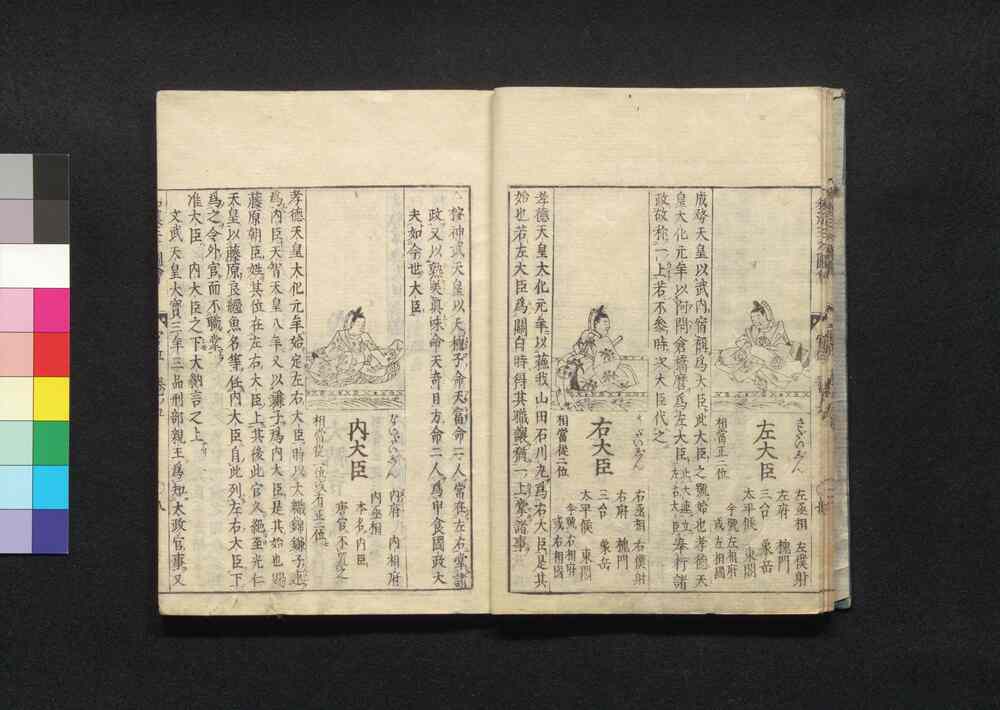 左大臣
左丞相 左僕射
左府 槐門
三台 象岳
太平候 東閤
今號左相府
或左相國
相當正二位
成務天皇以武内宿禰為大臣此大臣之號始也孝德天
皇大化元年以阿閇倉橋麿為左大臣
政故称一上若不參時次大臣代之
右大臣
右丞相 右僕射
右府 槐門
三台 象岳
太平候 東閤
今號右相府
或右相國
相當從二位
孝德天皇大化元年以蘓我山田石川丸為右大臣是其
始也若左大臣爲關白時得其職讓猶一上掌諸事
神武天皇以天種子命天富命二人常在左右掌諸
政又以
命天奇日方命二人為申食國政大
夫如今世大臣
内大臣
ないだいじん
内府 内相府
内丞相
本名内臣
唐官不置之
孝德天皇大化元年始定左右大臣時以大織錦鎌子連
為内臣天智天皇八年又以鎌子為内大臣是其始也賜
藤原朝臣姓其位在左右大臣上其後此官久絶至光仁
天皇以藤原良繼魚名等任内大臣自此列左右大臣下
為之令外官而不職掌
准大臣 内大臣之下大納言之上
文武天皇大寶三年三品刑部親王為知太政官事又